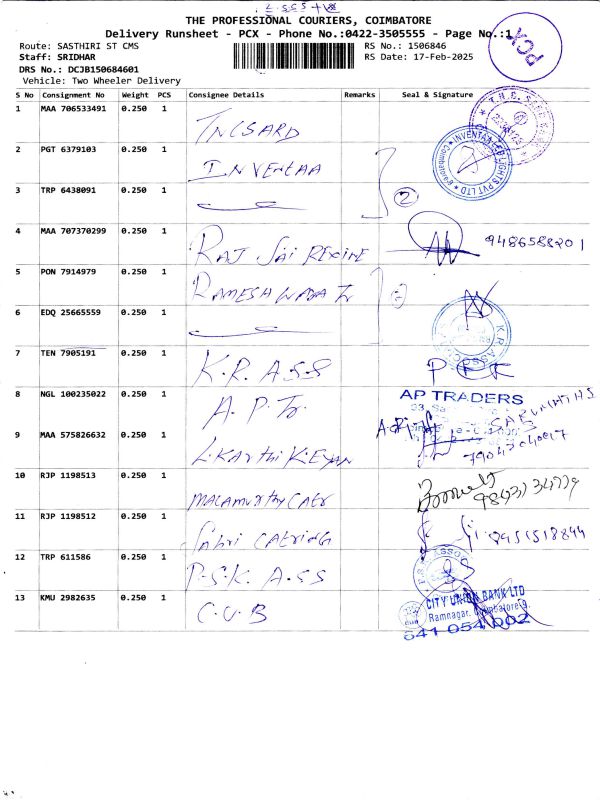 THE PROFESSIONAL COURIERS, COIMBATORE
Delivery Runsheet - PCX - Phone No.:0422-3505555 - Page No.:1
PCX
Route: SASTHIRI ST CMS
RS No.: 1506846
Staff: SRIDHAR
RS Date: 17-Feb-2025
DRS No.: DCJB150684601
Vehicle: Two Wheeler Delivery
S No Consignment No Weight PCS Consignee Details Remarks Seal & Signature
1 MAA 706533491 0.250 1 TNCSARD
2 PGT 6379103 0.250 1 INVENTAA
INVENTAA LED LIGHTS PVT LTD
3 TRP 6438091 0.250 1
2
4 MAA 707370299 0.250 1 RAJ SAI REXINE 9486588201
5 PON 7914979 0.250 1 RAMESH
6 EDQ 25665559 0.250 1
7 TEN 7905191 0.250 1 K.R. ASS
8 NGL 100235022 0.250 1 A.P.Tr.
AP TRADERS
9 MAA 575826632 0.250 1 KARTHIKEYAN
10 RJP 1198513 0.250 1
11 RJP 1198512 0.250 1 Sabri
12 TRP 611586 0.250 1 P.S.K. ASS
13 KMU 2982635 0.250 1 C.U.B
CITY UNION BANK LTD
Ramnagar, Coimbatore-9.
641 054 002